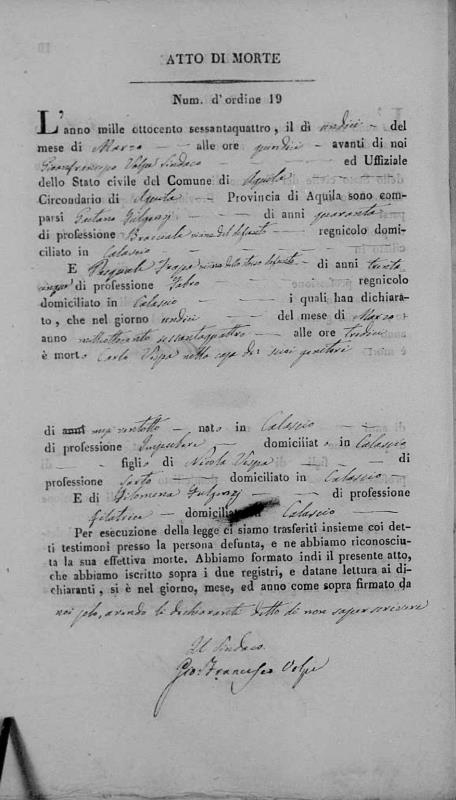 ATTO DI MORTE
Num. d'ordine 19
L'anno mille ottocento sessantaquattro, il dì undici del
mese di Marzo alle ore quindici avanti di noi
Gianfrancesco Volpe Sindaco ed Uffiziale
dello Stato civile del Comune di
Circondario di Provincia di Aquila sono com-
parsi Gaetano Fulgenzj di anni quaranta
di professione Bracciale vicino del defunto regnicolo domi-
ciliato in Calascio
E Pasquale vicino dello stesso defunto di anni trenta
cinque di professione Fabro regnicolo
domiciliato in Calascio i quali han dichiara-
to, che nel giorno undici del mese di Marzo
anno milleottocento sessantaquattro alle ore tredici
è morto Carlo Vespa nella casa de' suoi genitori
di anni ventotto nato in Calascio
di professione domiciliato in Calascio
figlio di Nicola Vespa di
professione Sarto domiciliato in Calascio
E di Filomena Fulgenzj di professione
Filatrice domiciliata in Calascio
Per esecuzione della legge ci siamo trasferiti insieme coi det-
ti testimoni presso la persona defunta, e ne abbiamo riconosciu-
ta la sua effettiva morte. Abbiamo formato indi il presente atto,
che abbiamo iscritto sopra i due registri, e datane lettura ai di-
chiaranti, si è nel giorno, mese, ed anno come sopra firmato da
noi solo, avendo li dichiaranti detto di non saper scrivere
Il Sindaco
Gio: Francesco Volpe